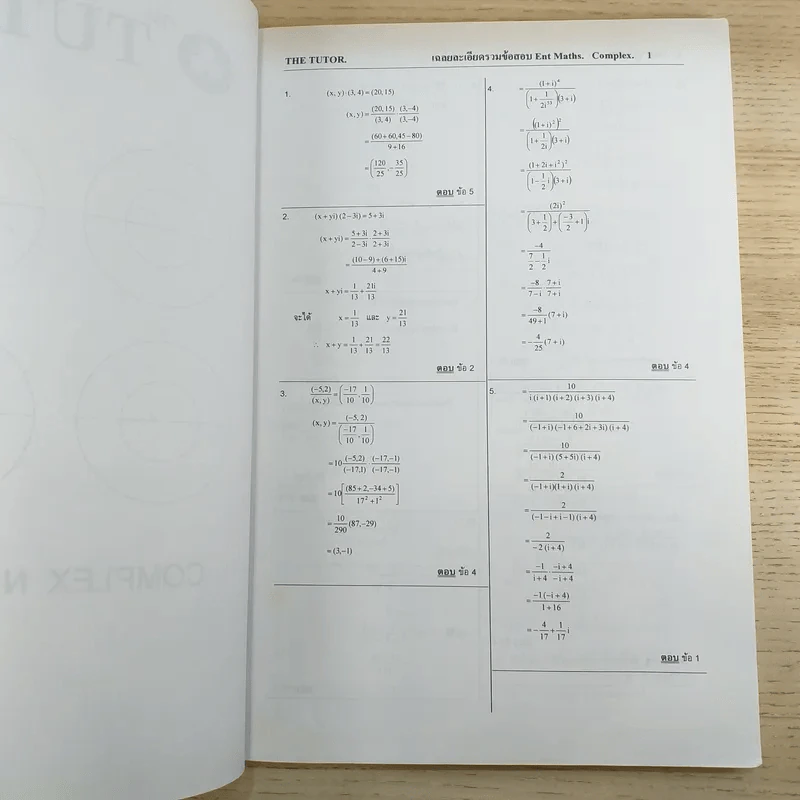 THE TUTOR. เฉลยละเอียดรวมข้อสอบ Ent Maths. Complex. 1
1. (x, y)·(3, 4) = (20, 15)
(x, y) = (20, 15)/(3, 4) · (3, −4)/(3, −4)
= (60+60, 45−80)/(9+16)
= (120/25, −35/25)
ตอบ ข้อ 5
2. (x + yi)(2 − 3i) = 5 + 3i
(x + yi) = (5+3i)/(2−3i) · (2+3i)/(2+3i)
= ((10−9)+(6+15)i)/(4+9)
x + yi = 1/13 + 21i/13
จะได้ x = 1/13 และ y = 21/13
∴ x + y = 1/13 + 21/13 = 22/13
ตอบ ข้อ 2
3. (−5,2)/(x, y) = (−17/10, 1/10)
(x, y) = (−5, 2)/(−17/10, 1/10)
= 10 (−5,2)/(−17,1) · (−17,−1)/(−17,−1)
= 10[(85+2, −34+5)/(17² + 1²)]
= 10/290 (87, −29)
= (3, −1)
ตอบ ข้อ 4
4. = (1+i)⁴/((1 + 1/2i³³)(3+i))
= ((1+i)²)²/((1 + 1/2i)(3+i))
= (1+2i+i²)²/((1 − 1/2 i)(3+i))
= (2i)²/((3 + 1/2) + (−3/2 + 1)i)
= −4/(7/2 − 1/2 i)
= −8/(7−i) · (7+i)/(7+i)
= −8/(49+1) (7+i)
= −4/25 (7+i)
ตอบ ข้อ 4
5. = 10/(i(i+1)(i+2)(i+3)(i+4))
= 10/((−1+i)(−1+6+2i+3i)(i+4))
= 10/((−1+i)(5+5i)(i+4))
= 2/((−1+i)(1+i)(i+4))
= 2/((−1−i+i−1)(i+4))
= 2/(−2(i+4))
= −1/(i+4) · (−i+4)/(−i+4)
= −1(−i+4)/(1+16)
= −4/17 + 1/17 i
ตอบ ข้อ 1